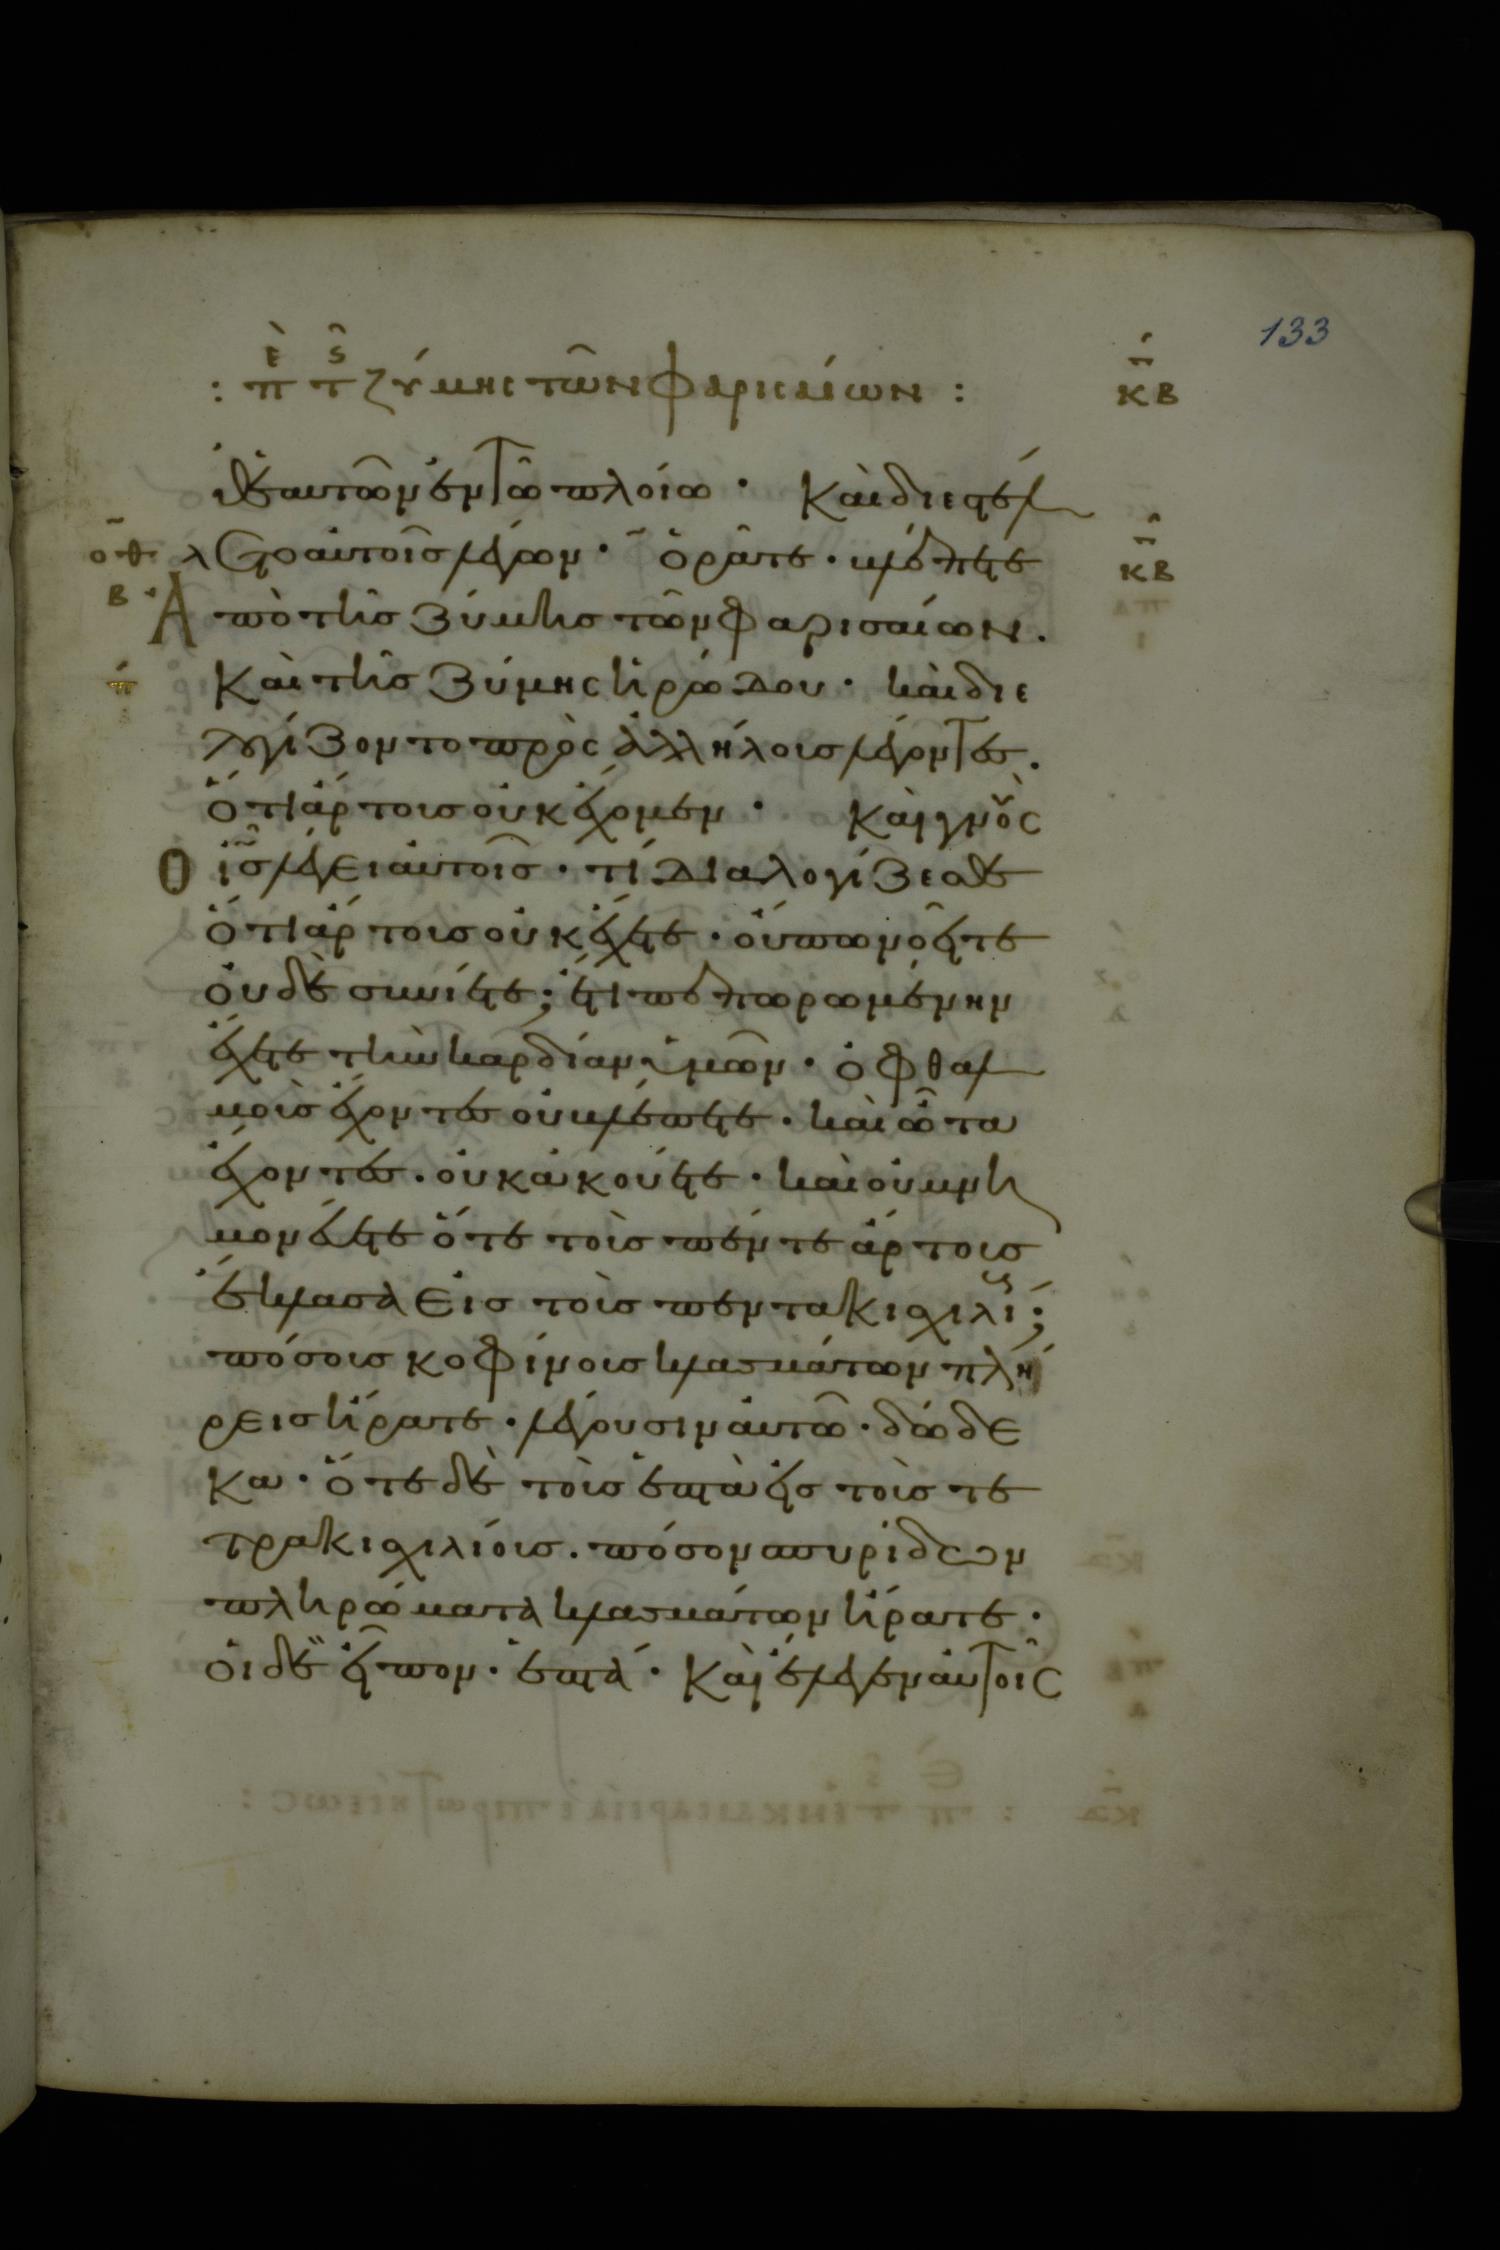 133
: πε τς ζύμης τῶν φαρισαίων : κβ
θ ἑαυτῶν ἐν τῶ πλοίω · Καὶ διεστέλ
λετο αὐτοῖς λέγων · ὁρᾶτε · βλέπετε
οθ β
κβ
Ἀπὸ τῆς ζύμης τῶν φαρισαίων .
π Καὶ τῆς ζύμης ἡρώδου · καὶ διε
λογίζοντο πρὸς ἀλλήλους λέγοντες .
ὅτι ἄρτους οὐκ ἔχομεν · Καὶ γνοὺς
Ὁ ἰς λέγει αὐτοῖς · τί διαλογίζεσθε
ὅτι ἄρτους οὐκ ἔχετε · οὔπω νοεῖτε
οὐδὲ συνίετε ; ἔτι πεπωρωμένην
ἔχετε τὴν καρδίαν ὑμῶν · ὀφθαλ
μοὺς ἔχοντες οὐ βλέπετε · καὶ ὦτα
ἔχοντες . οὐκ ἀκούετε · καὶ οὐ μνη
μονεύετε ὅτε τοὺς πέντε ἄρτους
ἔκλασα εἰς τοὺς πεντακισχιλίους ;
πόσους κοφίνους κλασμάτων πλή
ρεις ἤρατε · λέγουσιν αὐτῶ · δώδε
κα · ὅτε δὲ τοὺς ἑπτὰ εἰς τοὺς τε
τρακισχιλίους . πόσον σπυρίδων
πληρώματα κλασμάτων ἤρατε ·
οἱ δὲ εἶπον · ἑπτά · Καὶ ἔλεγεν αὐτοῖς